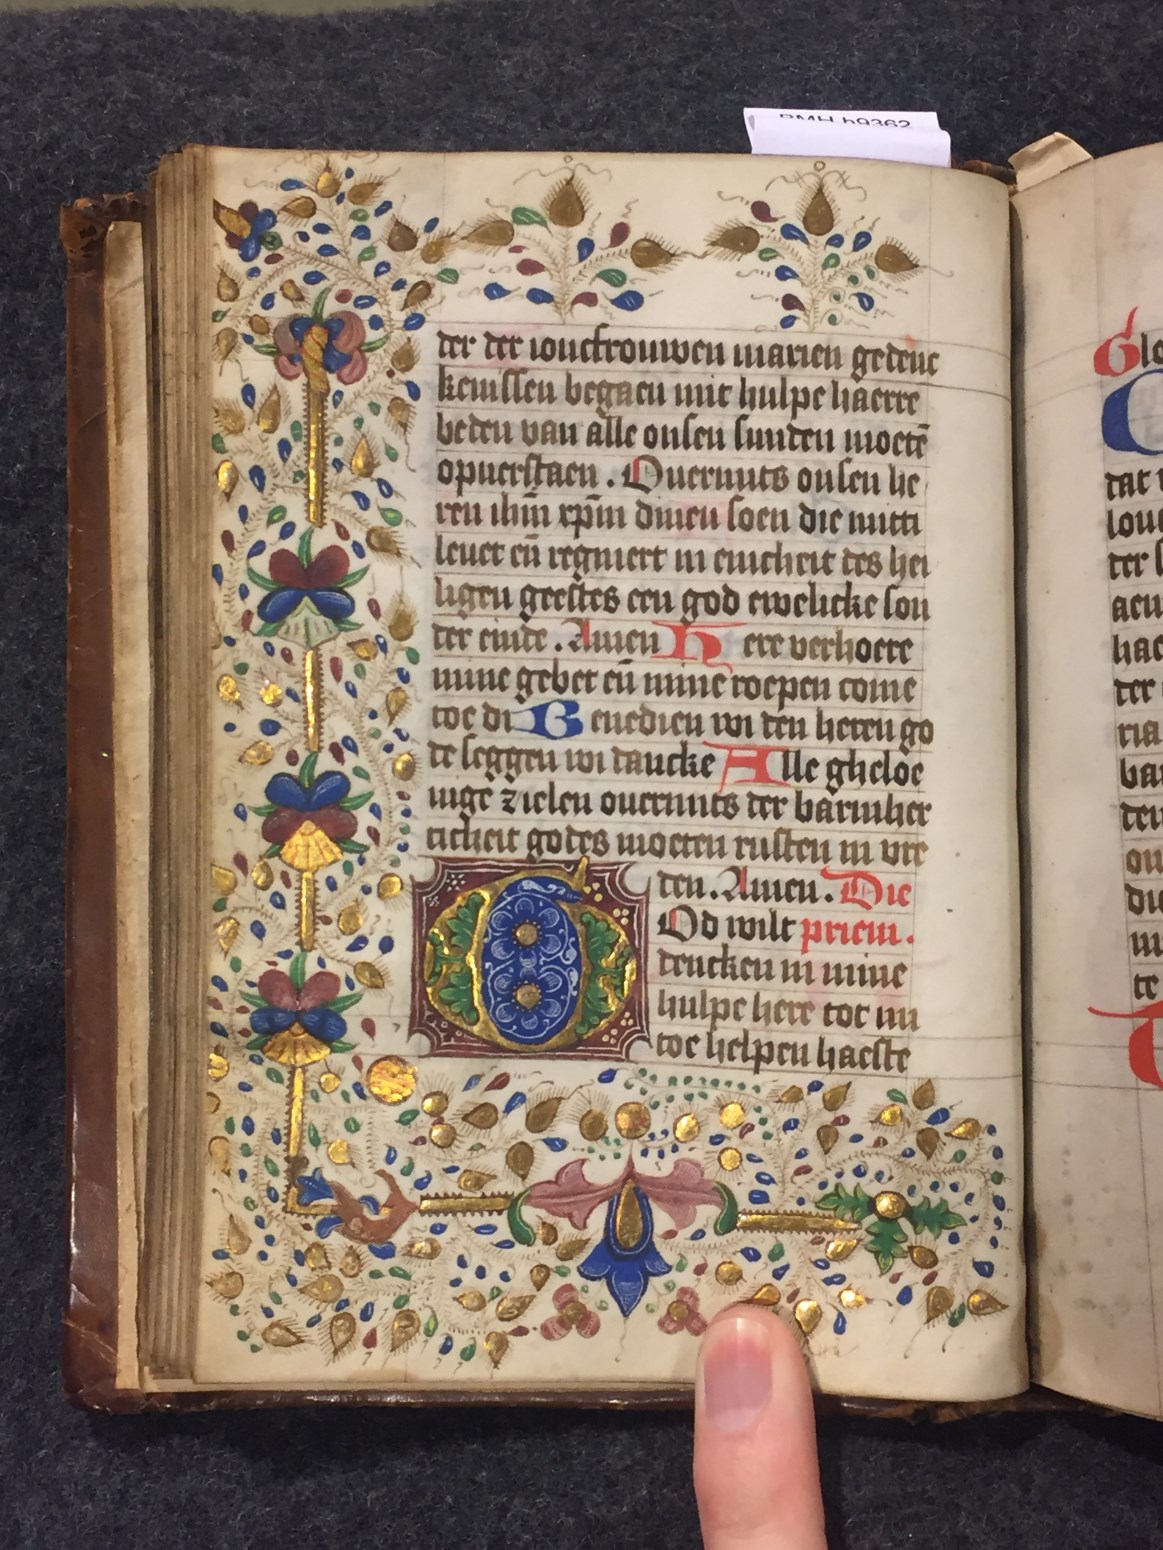 BMH h9362
der der ioncfrouwen marien gedenc
kenissen begaen mit hulpe haerre
beden van alle onsen sunden moetē
opuerstaen. Ouermits onsen he
ren ihm̄ xp̄m dinen soen die mitti
leuet en̄ regniert in enicheit des hei
ligen geestes een god ewelicke son
der einde. Amen Here verhoere
mine gebet en̄ mine roepen come
toe di Benedien wi den heren go
de seggen wi dancke Alle gheloe
uige zielen ouermits der barmher
ticheit godes moeten rusten in vre
den. Amen. Die
God wilt priem.
dencken in mine
hulpe here toe mi
toe helpen haeste